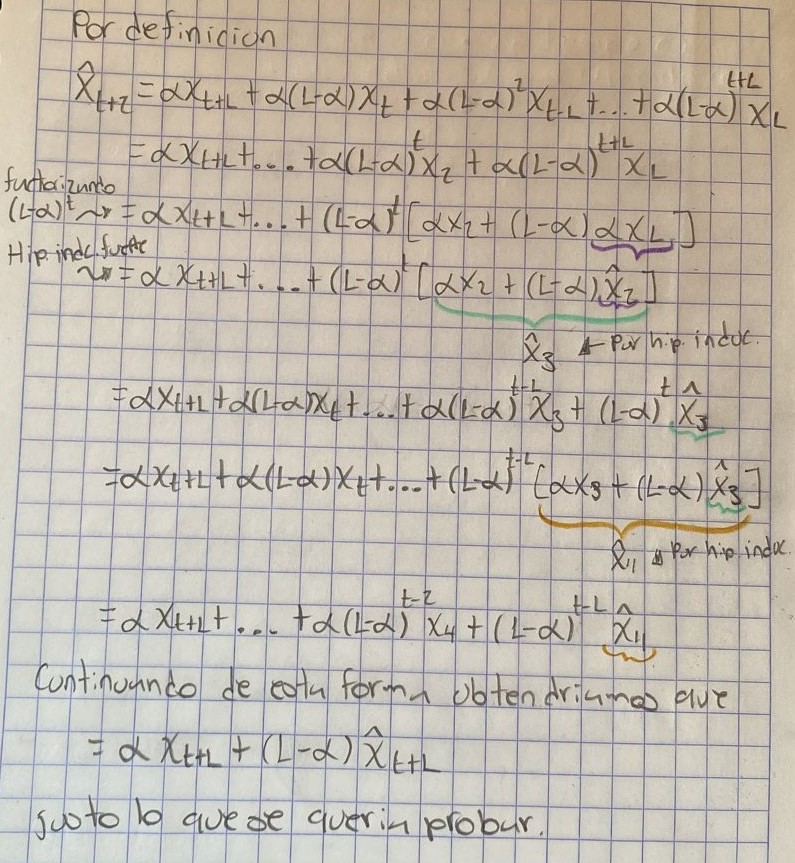 Por definicion
X̂_{t+2} = αX_{t+1} + α(1-α)X_t + α(1-α)^2 X_{t-1} + ... + α(1-α)^{t+1} X_1
= αX_{t+1} + ... + α(1-α)^t X_2 + α(1-α)^{t+1} X_1
factorizando
(1-α)^t ~> = αX_{t+1} + ... + (1-α)^t [αX_2 + (1-α) αX_1]
Hip. indc. fuerte
~> = αX_{t+1} + ... + (1-α)^t [αX_2 + (1-α) X̂_2]
X̂_3 ← Por hip. induc.
= αX_{t+1} + α(1-α)X_t + ... + α(1-α)^{t-1} X_3 + (1-α)^t X̂_3
= αX_{t+1} + α(1-α)X_t + ... + (1-α)^{t-1} [αX_3 + (1-α) X̂_3]
X̂_4 ← Por hip. induc.
= αX_{t+1} + ... + α(1-α)^{t-2} X_4 + (1-α)^{t-1} X̂_4
Continuando de esta forma obtendriamos que
= αX_{t+1} + (1-α) X̂_{t+1}
justo lo que se queria probar.